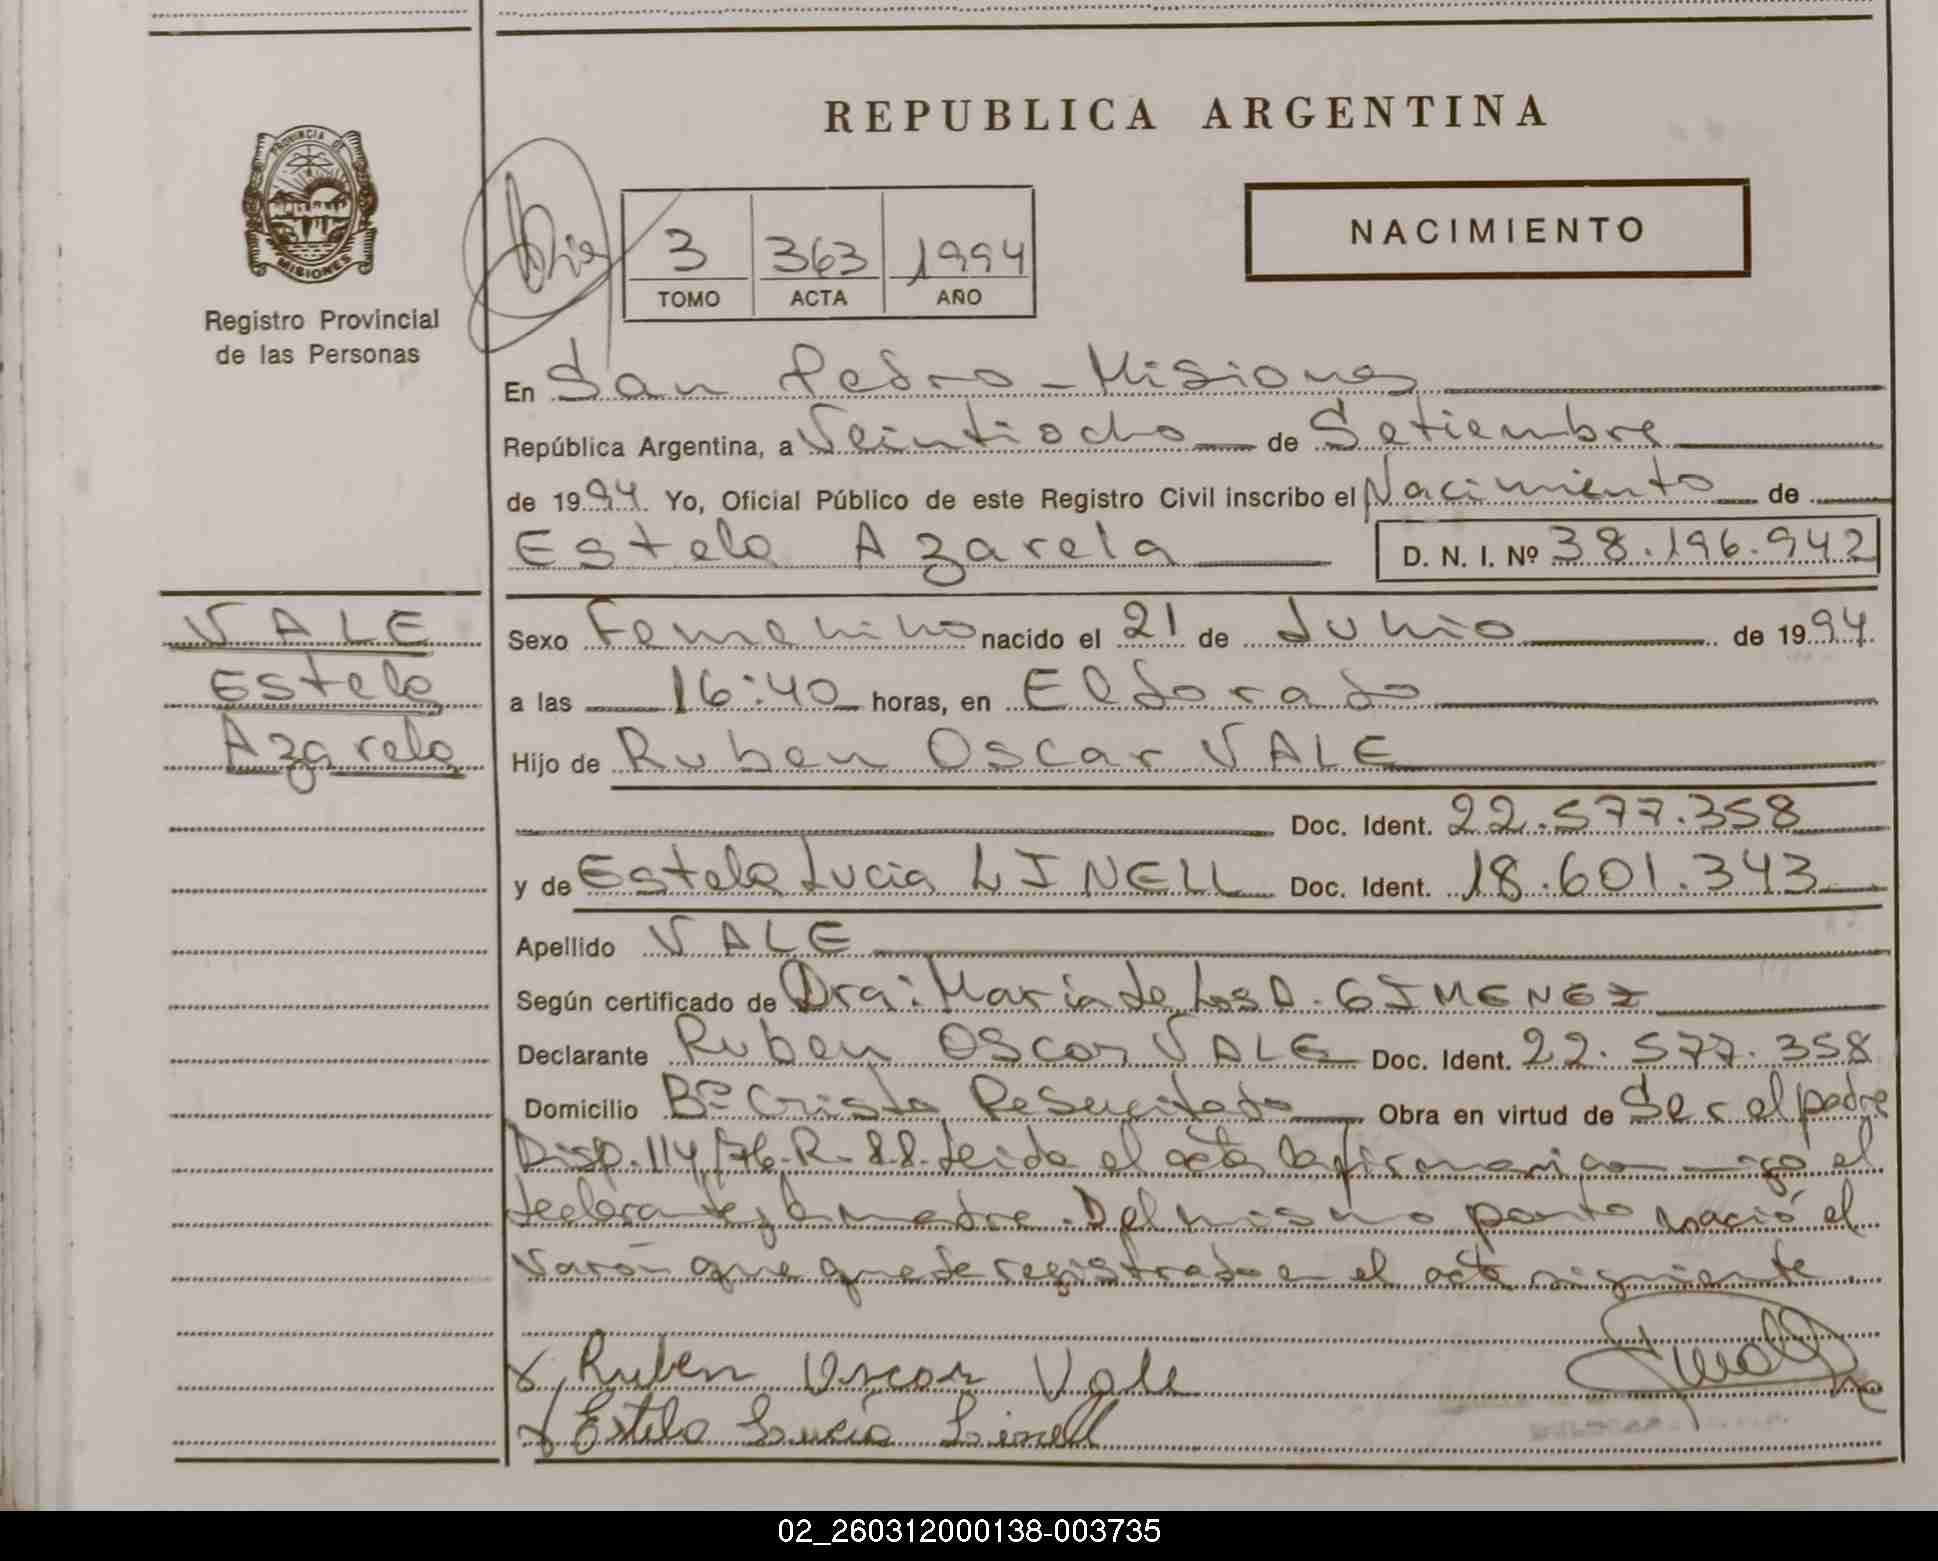 REPUBLICA ARGENTINA
PROVINCIA DE
MISIONES
Registro Provincial
de las Personas
NACIMIENTO
3 363 1994
TOMO ACTA AÑO
En San Pedro - Misiones
República Argentina, a Veintiocho de Setiembre
de 1994. Yo, Oficial Público de este Registro Civil inscribo el Nacimiento de
Estela Azarela D. N. I. Nº 38.196.942
VALE
Estela
Azarela
Sexo Femenino nacido el 21 de Junio de 1994.
a las 16:40 horas, en Eldorado
Hijo de Ruben Oscar VALE
Doc. Ident. 22.577.358
y de Estela Lucia LINELL Doc. Ident. 18.601.343
Apellido VALE
Según certificado de Dra: María de Los A. GIMENEZ
Declarante Ruben Oscar VALE Doc. Ident. 22.577.358
Domicilio Bº Cristo Resucitado Obra en virtud de Ser el padre
Disp. 114/76.R.88. Leida el acta la firman conmigo el
declarante y la madre. Del mismo parto nació el
varón que queda registrado en el acta siguiente.
x Ruben Oscar Vale
x Estela Lucia Linell
02_260312000138-003735